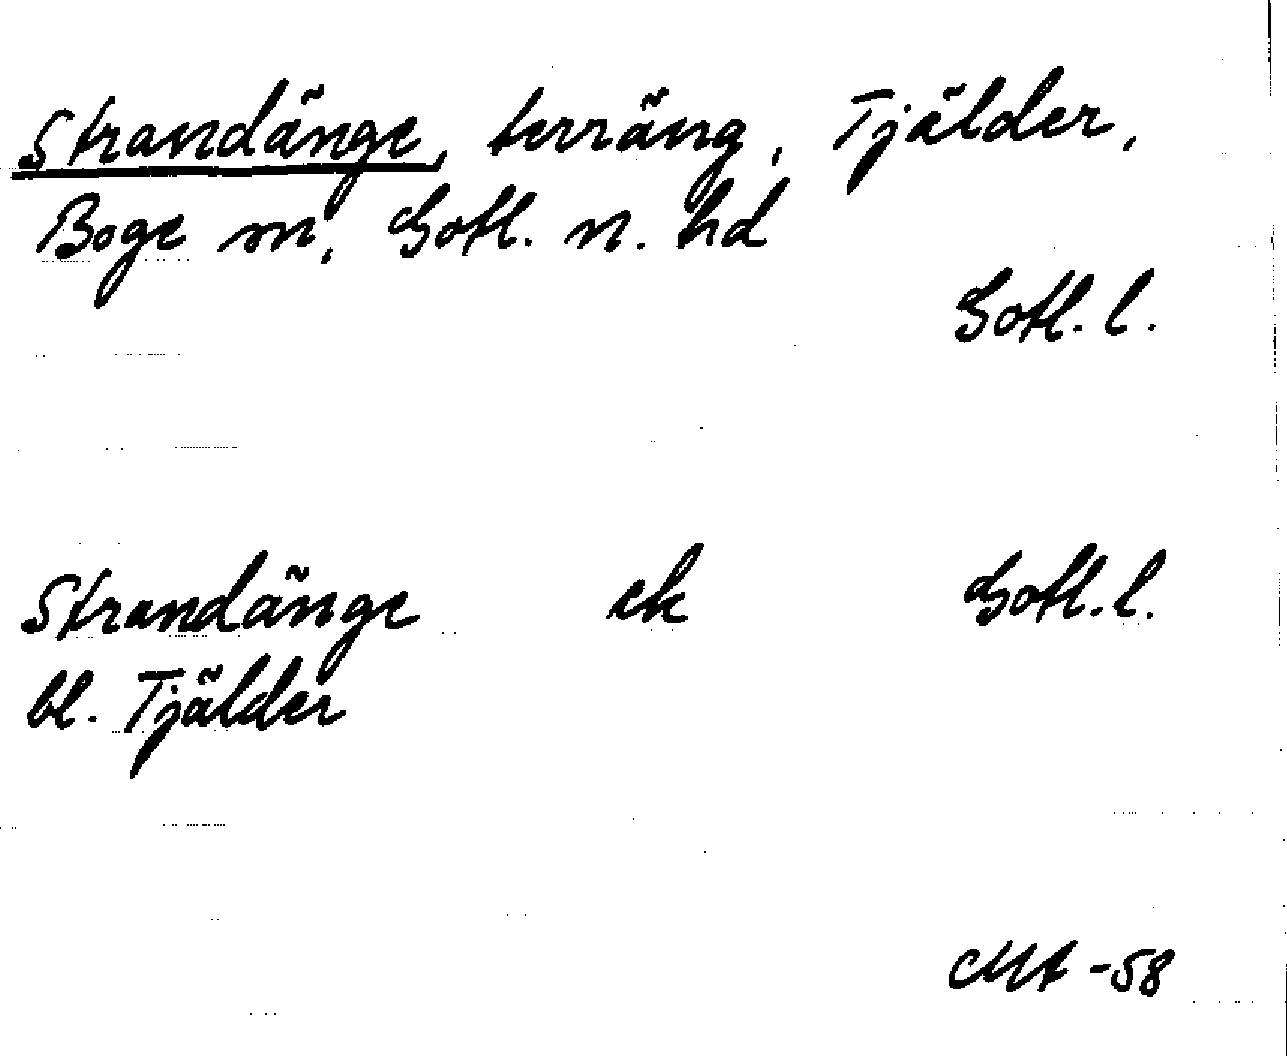 Strandänge, terräng, Tjälder,
Boge sn, Gotl. n. hd
Gotl. l.
Strandänge ek Gotl. l.
bl. Tjälder
MA -58